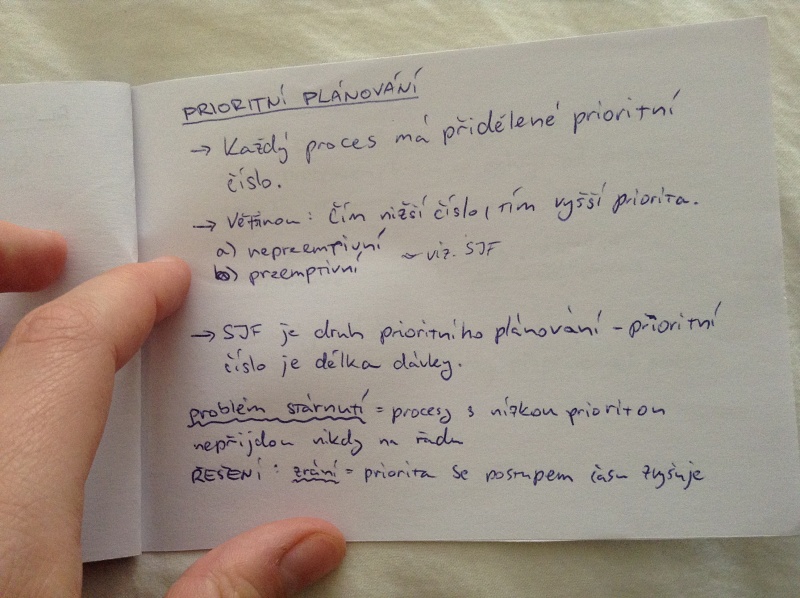 PRIORITNÍ PLÁNOVÁNÍ
→ Každý proces má přidělené prioritní
číslo.
→ Většinou: čím nižší číslo, tím vyšší priorita.
a) nepreemptivní
b) preemptivní ← viz. SJF
→ SJF je druh prioritního plánování - prioritní
číslo je délka dávky.
problém stárnutí = procesy s nízkou prioritou
nepřijdou nikdy na řadu
ŘEŠENÍ: zrání = priorita se postupem času zvyšuje